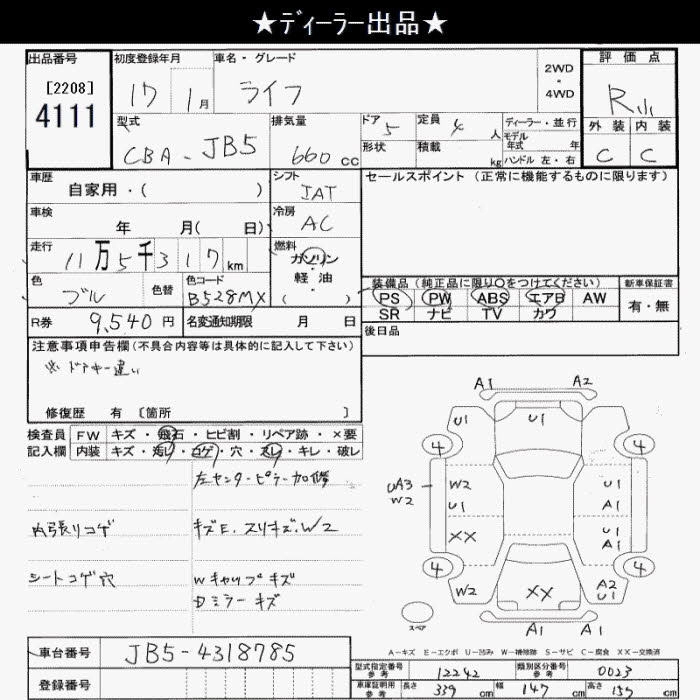 ★ディーラー出品★
出品番号 初度登録年月 車名・グレード 2WD・4WD 評価点
[2208] 4111 17 1月 ライフ R小
型式 排気量 ドア 定員 ディーラー・並行 外装 内装
CBA-JB5 660cc 5 4人 モデル年式 年 C C
形状 積載 kg ハンドル 左・右
車歴 シフト セールスポイント(正常に機能するものに限ります)
自家用・( ) IAT
車検 冷房
年 月( 日) AC
走行 燃料
11万5千317km ガソリン・軽油 ( )
色 色替 色コード 装備品(純正品に限り○をつけてください) 新車保証書
ブル B528MX PS PW ABS エアB AW 有・無
SR ナビ TV カワ
R券 9,540円 名変通知期限 月 日 後日品
注意事項申告欄(不具合内容等は具体的に記入して下さい)
※ドアキー違い
修復歴 有 〔箇所 〕
検査員 FW キズ・飛石・ヒビ割・リペア跡・×要
記入欄 内装 キズ・汚レ・コゲ・穴・スレ・キレ・破レ
左センターピラー加修
内張りコゲ キズE.スリキズ.W2
シートコゲ穴 Wキャップキズ
Dミラーキズ
A1 A2
U1 U1
4 4
UA3 W2 U1
W2 U1 A1
XX U1 A1
4 4
W2 XX A2 U1
スペア A1 A1
A-キズ E-エクボ U-凹み W-補修跡 S-サビ C-腐食 XX-交換済
車台番号 JB5-4318785
登録番号
型式指定番号 参考 12242 類別区分番号 参考 0023
車庫証明用 参考 長さ 339cm 幅 147cm 高さ cm